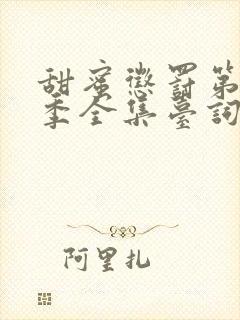 甜蜜懲罰第
季全集臺詞
阿里扎